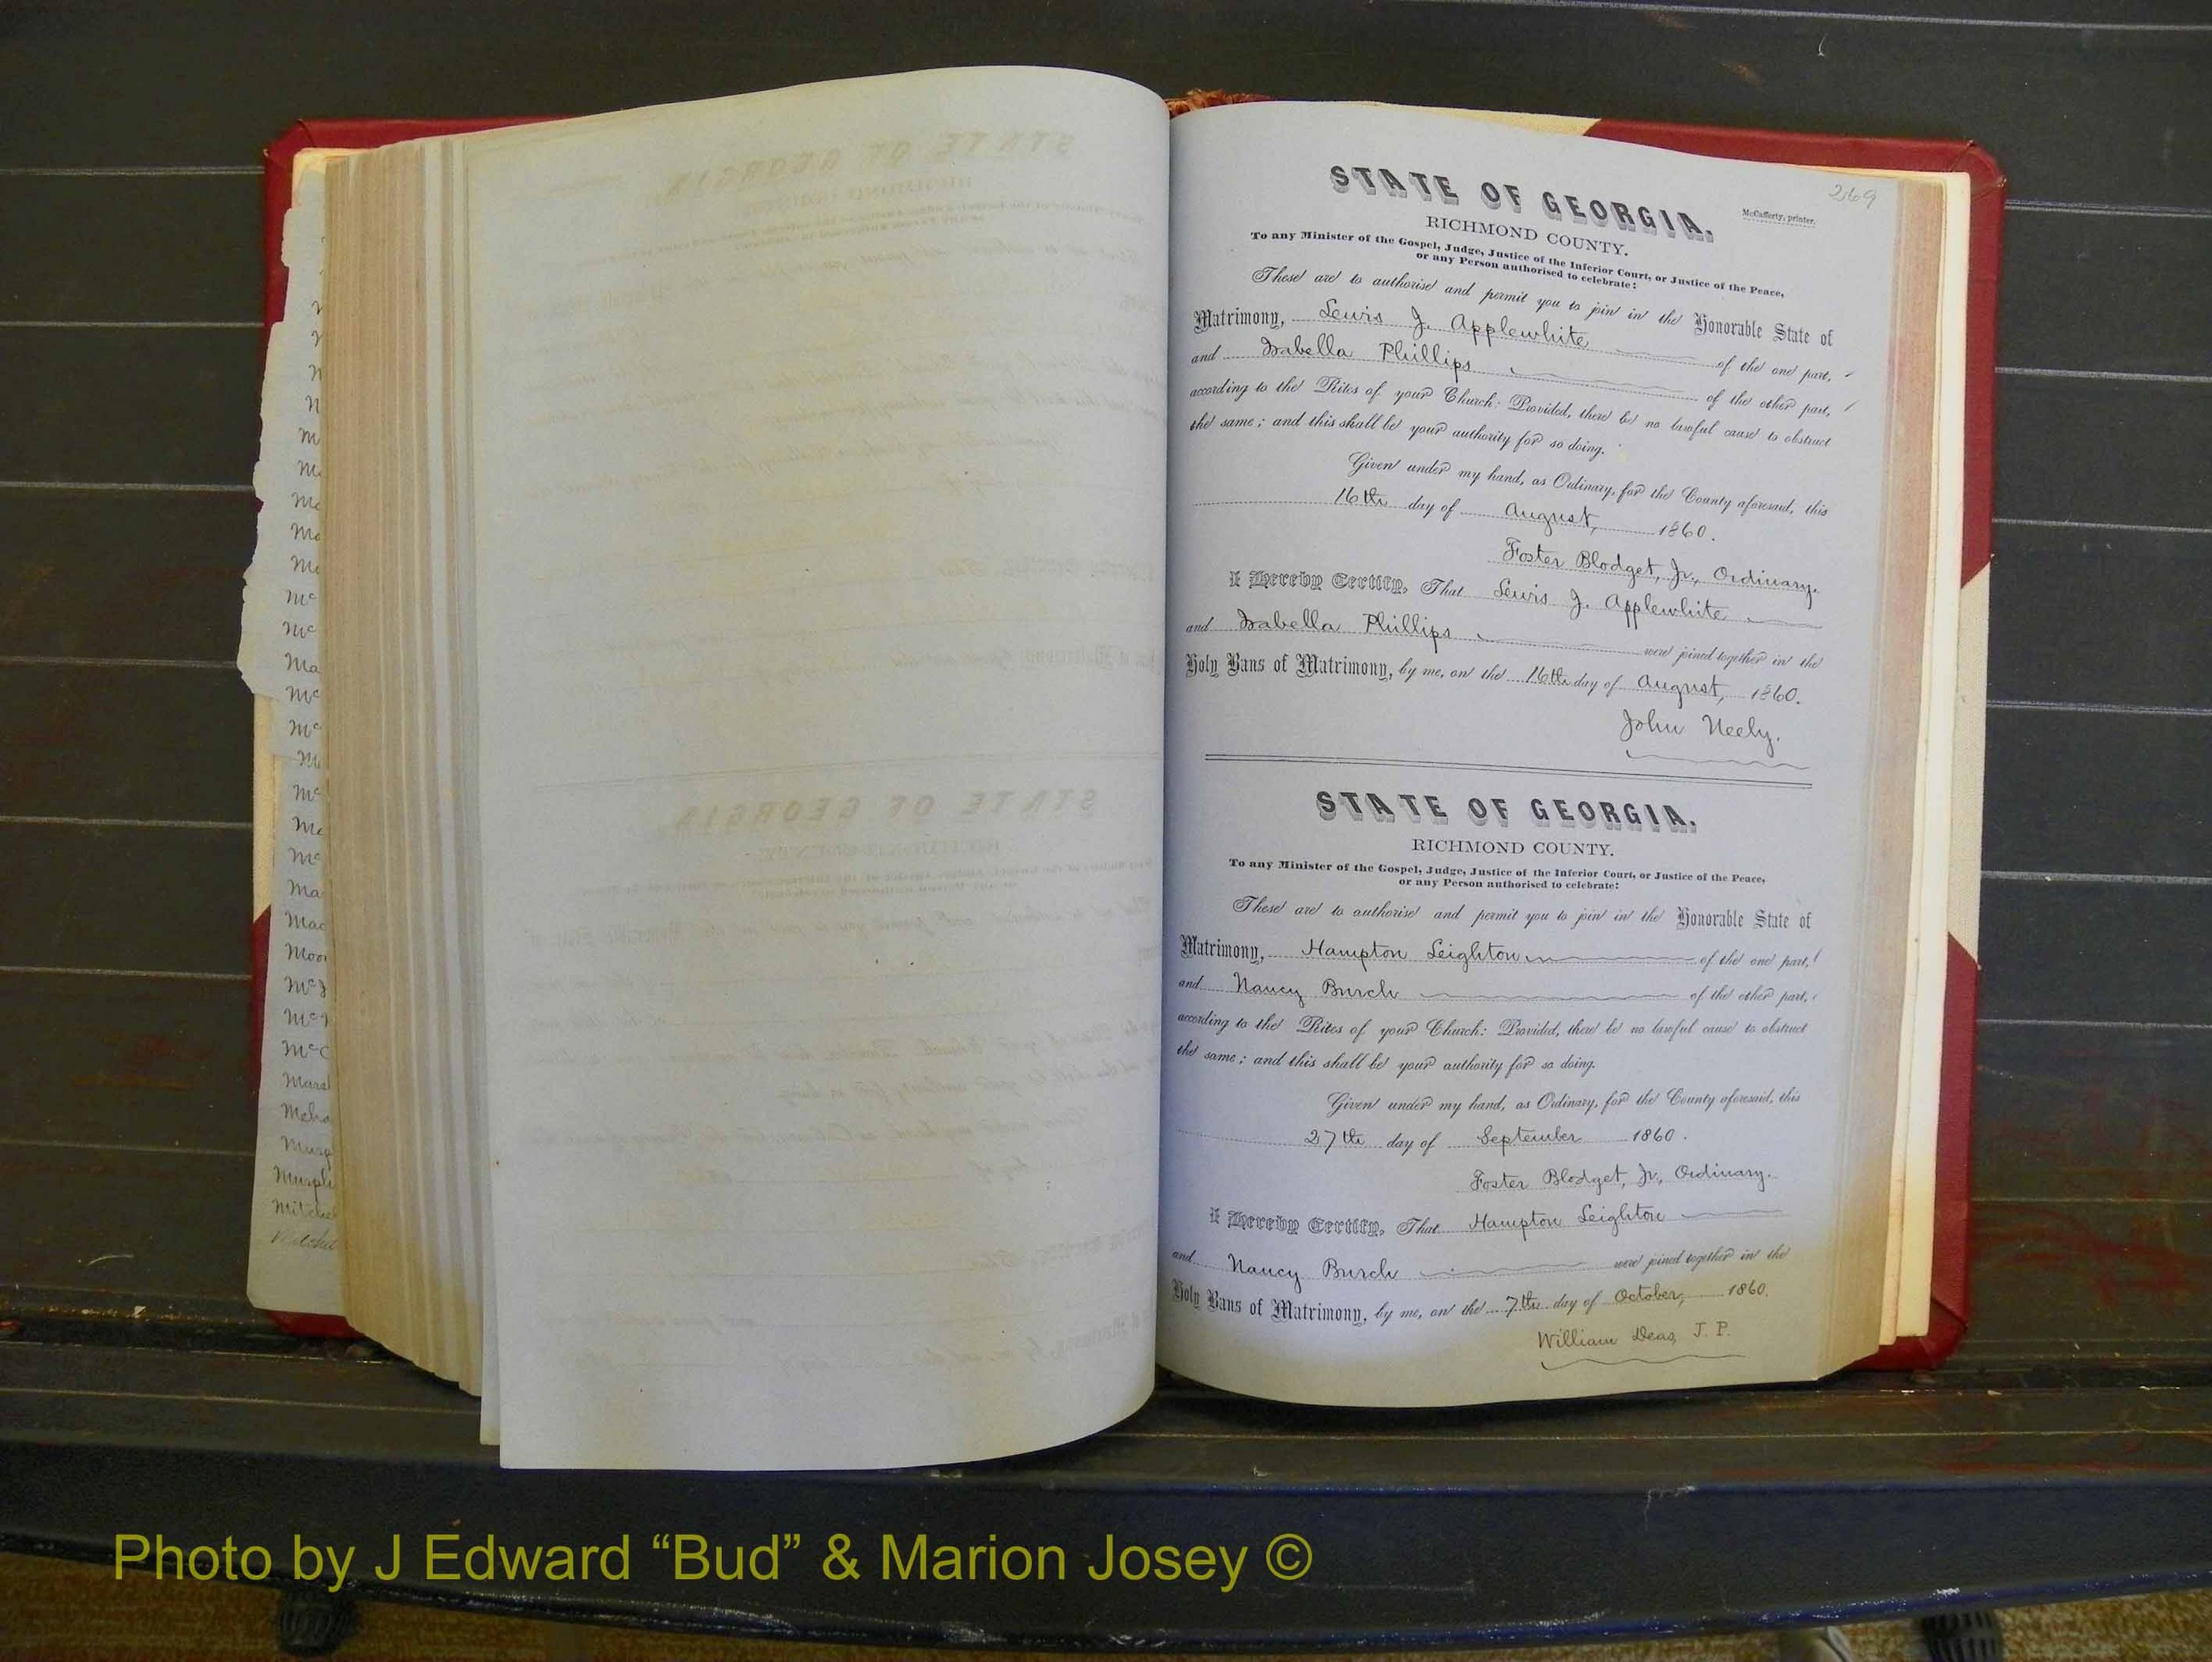 M
M
M
Ma
Mc
Mc
Ma
Mc
Mc
Mc
Mc
Ma
Mac
Moor
Mc
Mc
McC
Marsl
Murp
Murph
Mitchel
Mitchel
269
STATE OF GEORGIA.
McCafferty, printer.
RICHMOND COUNTY.
To any Minister of the Gospel, Judge, Justice of the Inferior Court, or Justice of the Peace,
or any Person authorised to celebrate:
These are to authorise and permit you to join in the Honorable State of
Matrimony, Lewis J. Applewhite of the one part,
and Isabella Phillips of the other part,
according to the Rites of your Church: Provided, there be no lawful cause to obstruct
the same; and this shall be your authority for so doing.
Given under my hand, as Ordinary, for the County aforesaid, this
16th day of August, 1860.
Foster Blodget, Jr., Ordinary.
I Hereby Certify, That Lewis J. Applewhite
and Isabella Phillips were joined together in the
Holy Bans of Matrimony, by me, on the 16th day of August, 1860.
John Neely.
STATE OF GEORGIA.
RICHMOND COUNTY.
To any Minister of the Gospel, Judge, Justice of the Inferior Court, or Justice of the Peace,
or any Person authorised to celebrate:
These are to authorise and permit you to join in the Honorable State of
Matrimony, Hampton Leighton of the one part,
and Nancy Burch of the other part,
according to the Rites of your Church: Provided, there be no lawful cause to obstruct
the same; and this shall be your authority for so doing.
Given under my hand, as Ordinary, for the County aforesaid, this
27th day of September 1860.
Foster Blodget, Jr., Ordinary.
I Hereby Certify, That Hampton Leighton
and Nancy Burch were joined together in the
Holy Bans of Matrimony, by me, on the 7th day of October, 1860.
William Deas, J. P.
Photo by J Edward “Bud” & Marion Josey ©